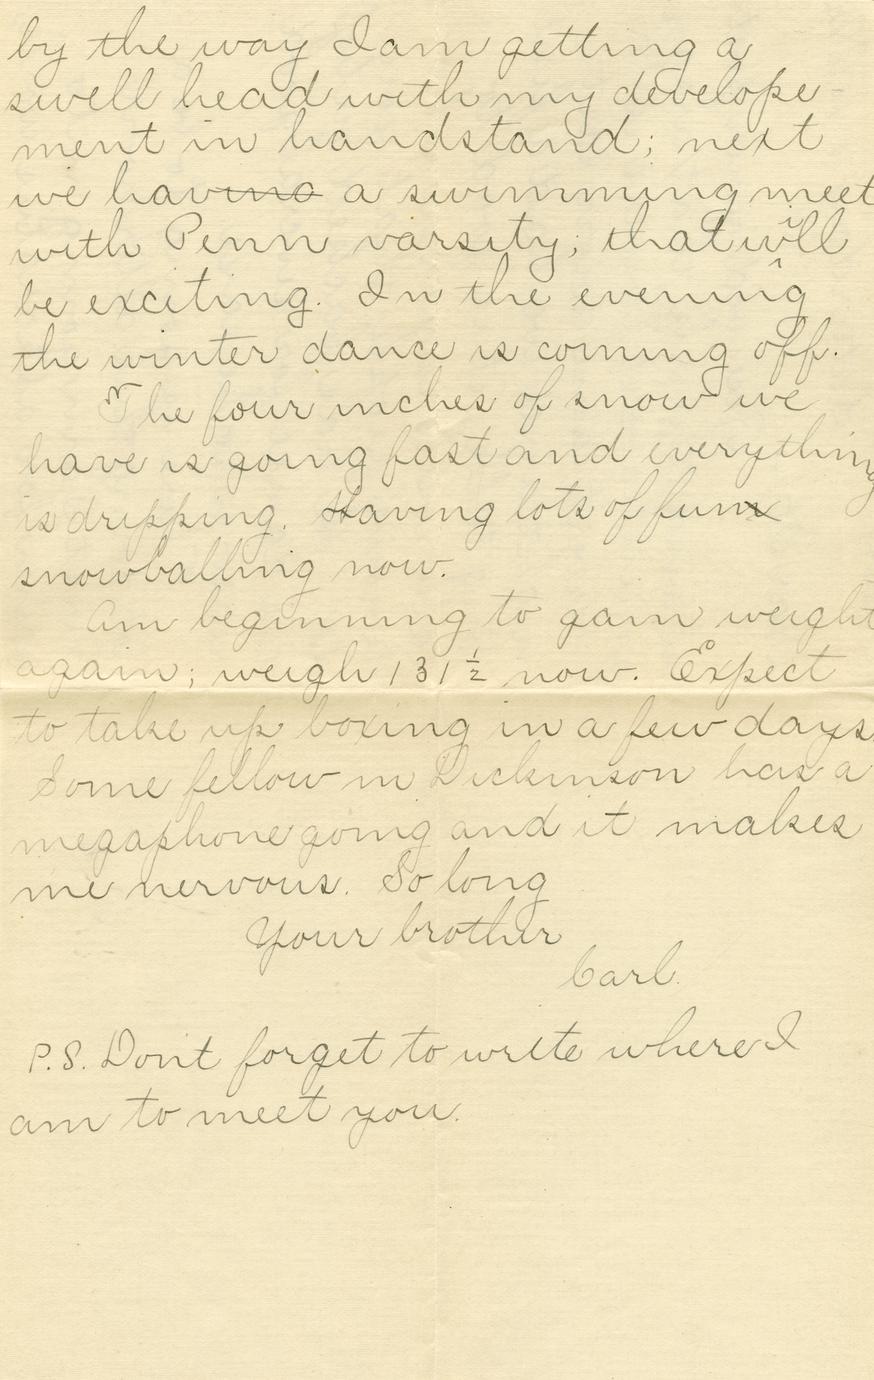 by the way I am getting a
swell head with my develope-
ment in handstand; next
we having a swimming meet
with Penn varsity; that will
be exciting. In the evening
the winter dance is coming off.
The four inches of snow we
have is going fast and everything
is dripping. Having lots of fun
snowballing now.
Am beginning to gain weight
again; weigh 131 1/2 now. Expect
to take up boxing in a few days.
Some fellow in Dickinson has a
megaphone going and it makes
me nervous. So long
Your brother
Carl.
P.S. Don't forget to write where I
am to meet you.